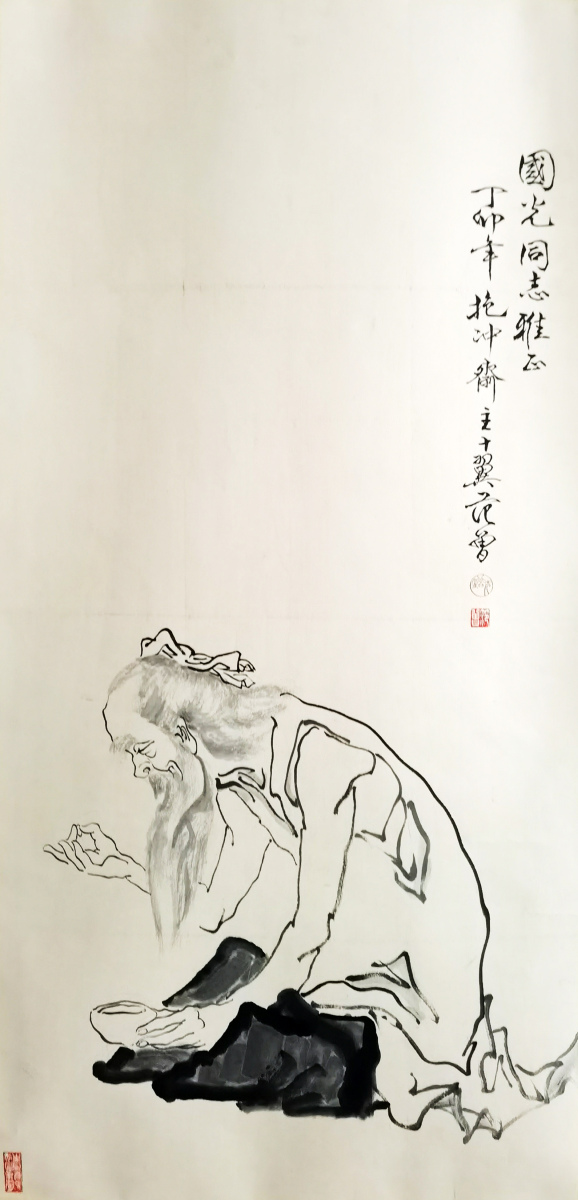 國光同志雅正
丁卯年抱冲齋主十翼范曾